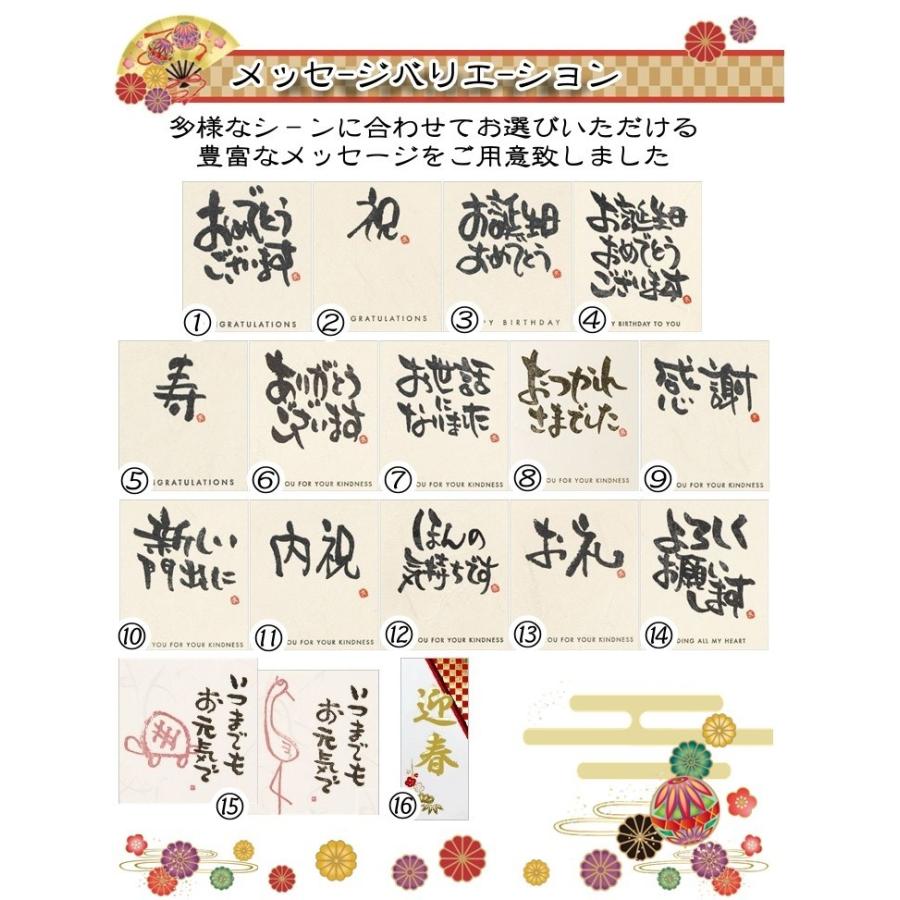 メッセージバリエーション
多様なシーンに合わせてお選びいただける
豊富なメッセージをご用意致しました
おめでとう
ございます
① GRATULATIONS
祝
② GRATULATIONS
お誕生日
おめでとう
③ Y BIRTHDAY
お誕生日
おめでとう
ございます
④ Y BIRTHDAY TO YOU
寿
⑤ NGRATULATIONS
ありがとう
ございます
⑥ OU FOR YOUR KINDNESS
お世話
に
なりました
⑦ OU FOR YOUR KINDNESS
おつかれ
さまでした
⑧ OU FOR YOUR KINDNESS
感謝
⑨ OU FOR YOUR KINDNESS
新しい
門出に
⑩ YOU FOR YOUR KINDNESS
内祝
⑪ OU FOR YOUR KINDNESS
ほんの
気持ちです
⑫ OU FOR YOUR KINDNESS
お礼
⑬ OU FOR YOUR KINDNESS
よろしく
お願い
します
⑭ DING ALL MY HEART
いつまでも
お元気で
いつまでも
お元気で
⑮
迎春
⑯